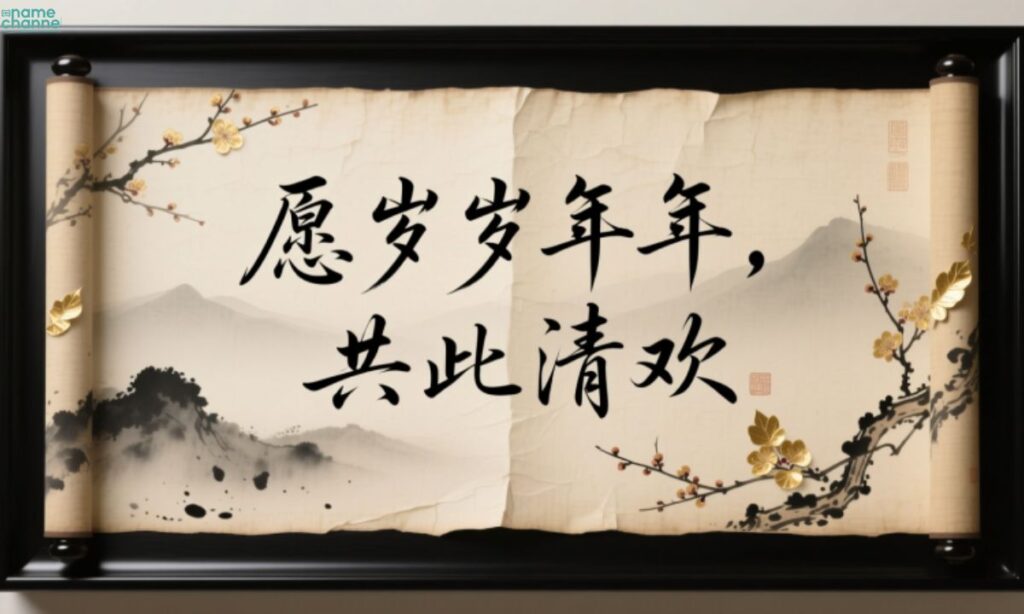 name
channe
愿岁岁年年，
共此清欢